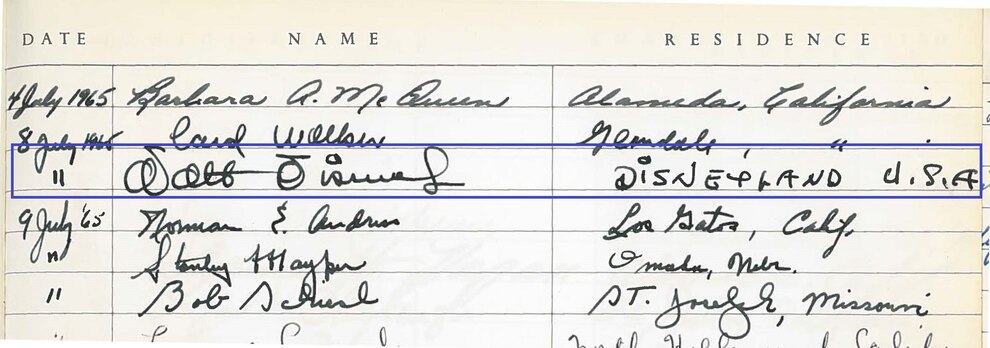 DATE NAME RESIDENCE
4 July 1965 Barbara A. McQueen Alameda, California
8 July 1965 Card Walker Glendale, "
" Walt Disney DISNEYLAND U.S.A
9 July '65 Norman E. Andrus Los Gatos, Calif.
" Stanley Omaha, Nebr.
" Bob St. Joseph, Missouri